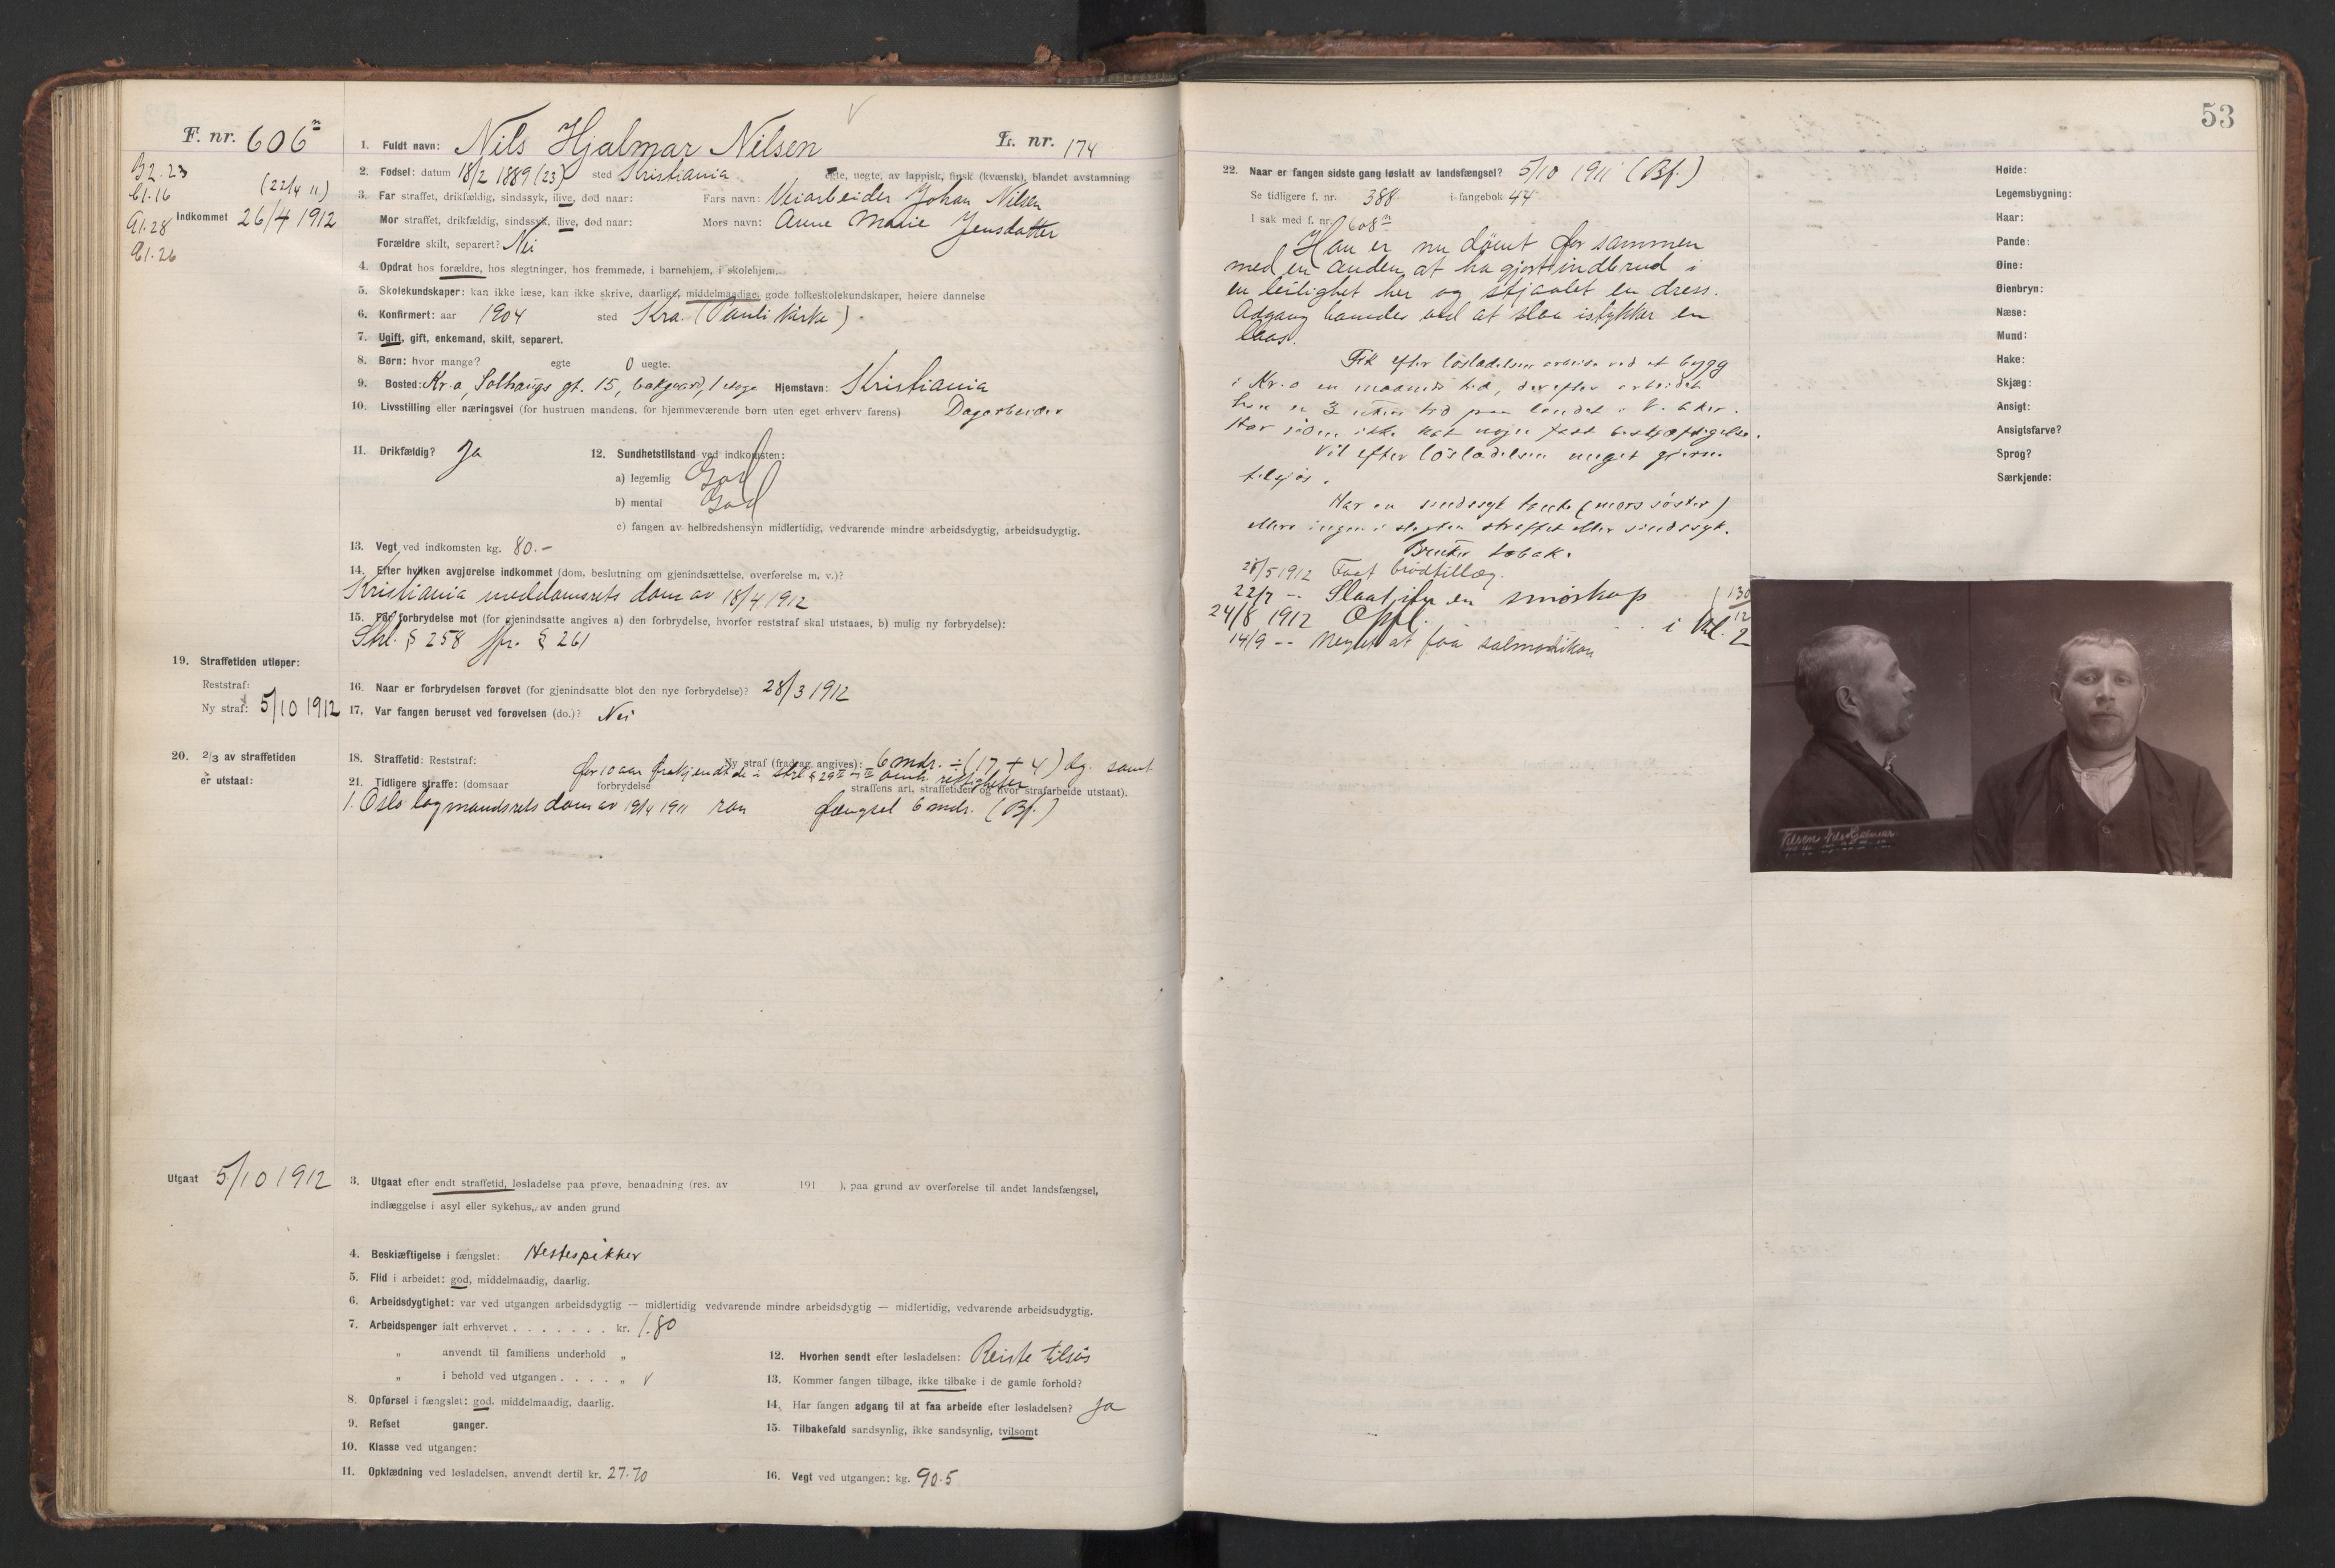 F. nr. 606 n
B2.23
C1.16
A1.28
C1.26
(22/4 11)
Indkommet 26/4 1912
1. Fuldt navn: Nils Hjalmar Nilsen L. nr. 174
2. Fødsel: datum 18/2 1889 (23) sted Kristiania egte, uegte, av lappisk, finsk (kvænsk), blandet avstamning
3. Far straffet, drikfældig, sindssyk, ilive, død naar: Fars navn: Veiarbeider Johan Nilsen
Mor straffet, drikfældig, sindssyk, ilive, død naar: Mors navn: Anne Marie Jensdatter
Forældre skilt, separert? Nei
4. Opdrat hos forældre, hos slegtninger, hos fremmede, i barnehjem, i skolehjem.
5. Skolekundskaper: kan ikke læse, kan ikke skrive, daarlige, middelmaadige, gode folkeskolekundskaper, høiere dannelse
6. Konfirmert: aar 1904 sted Kra. (Pauli kirke).
7. Ugift, gift, enkemand, skilt, separert.
8. Børn: hvor mange? egte 0 uegte.
9. Bosted: Kr.a, Solhaugs gt. 15, bakgaard, 1 etage Hjemstavn: Kristiania
10. Livsstilling eller næringsvei (for hustruen mandens, for hjemmeværende børn uten eget erhverv farens) Dagarbeider
11. Drikfældig? Ja 12. Sundhetstilstand ved indkomsten:
a) legemlig God
b) mental God
c) fangen av helbredshensyn midlertidig, vedvarende mindre arbeidsdygtig, arbeidsudygtig.
13. Vegt ved indkomsten kg. 80.-
14. Efter hvilken avgjørelse indkommet (dom, beslutning om gjenindsættelse, overførelse m. v.)?
Kristiania meddomsrets dom av 18/4 1912
15. For forbrydelse mot (for gjenindsatte angives a) den forbrydelse, hvorfor reststraf skal utstaaes, b) mulig ny forbrydelse):
Strl. § 258 jfr. § 261
19. Straffetiden utløper:
Reststraf:
Ny straf: 5/10 1912
16. Naar er forbrydelsen forøvet (for gjenindsatte blot den nye forbrydelse)? 28/3 1912
17. Var fangen beruset ved forøvelsen (do.)? Nei
20. 2/3 av straffetiden
er utstaat:
18. Straffetid: Reststraf: Ny straf (fradrag angives): 6 mdr. ÷ (17 + 4) dg. samt
for 10 aar frakjendt de i strl § 29 II - III omh. rettigheter
21. Tidligere straffe: (domsaar forbrydelse straffens art, straffetiden og hvor strafarbeide utstaat).
1. Oslo lagmandsrets dom av 19/4 1911 ran fængsel 6 mdr. (Bf.)
Utgaat 5/10 1912
3. Utgaat efter endt straffetid, løsladelse paa prøve, benaadning (res. av 191 ), paa grund av overførelse til andet landsfængsel,
indlæggelse i asyl eller sykehus, av anden grund
4. Beskjæftigelse i fængslet: Hestespikker
5. Flid i arbeidet: god, middelmaadig, daarlig.
6. Arbeidsdygtighet: var ved utgangen arbeidsdygtig — midlertidig vedvarende mindre arbeidsdygtig — midlertidig, vedvarende arbeidsudygtig.
7. Arbeidspenger ialt erhvervet . . . . . . . kr. 1.80
„ anvendt til familiens underhold „
„ i behold ved utgangen . . . . „ v
8. Opførsel i fængslet: god, middelmaadig, daarlig.
9. Refset ganger.
10. Klasse ved utgangen:
11. Opklædning ved løsladelsen, anvendt dertil kr. 27.70
12. Hvorhen sendt efter løsladelsen: Reiste tilsjøs
13. Kommer fangen tilbage, ikke tilbake i de gamle forhold?
14. Har fangen adgang til at faa arbeide efter løsladelsen? Ja
15. Tilbakefald sandsynlig, ikke sandsynlig, tvilsomt
16. Vegt ved utgangen: kg. 90.5
53
22. Naar er fangen sidste gang løslatt av landsfængsel? 5/10 1911 (Bf.)
Se tidligere f. nr. 388 i fangebok 44
I sak med f. nr. 608 n
Han er nu dømt for sammen
med en anden at ha gjort indbrud i
en leilighet her og stjaalet en dress.
Adgang banedes ved at slaa istykker en
laas.
Fik efter løsladelsen arbeide ved et bygg
i Kr.a en maaneds tid, derefter arbeidet
han en 3 ukers tid paa landet i V. Aker.
Har siden ikke hat nogen fast beskjæftigelse.
Vil efter løsladelsen meget gjerne
tilsjøs.
Har en sindssyk tante (mors søster)
ellers ingen i slegten straffet eller sindssyk.
Bruker tobak.
28/5 1912 Faat brødtillæg.
22/7 -- Slaat itu en smørkop (130/12
24/8 1912 Oppf. i kl. 2
14/9 -- Negtet at faa salmodikon
Høide:
Legemsbygning:
Haar:
Pande:
Øine:
Øienbryn:
Næse:
Mund:
Hake:
Skjæg:
Ansigt:
Ansigtsfarve?
Sprog?
Særkjende:
Nilsen Nils Hjalmar